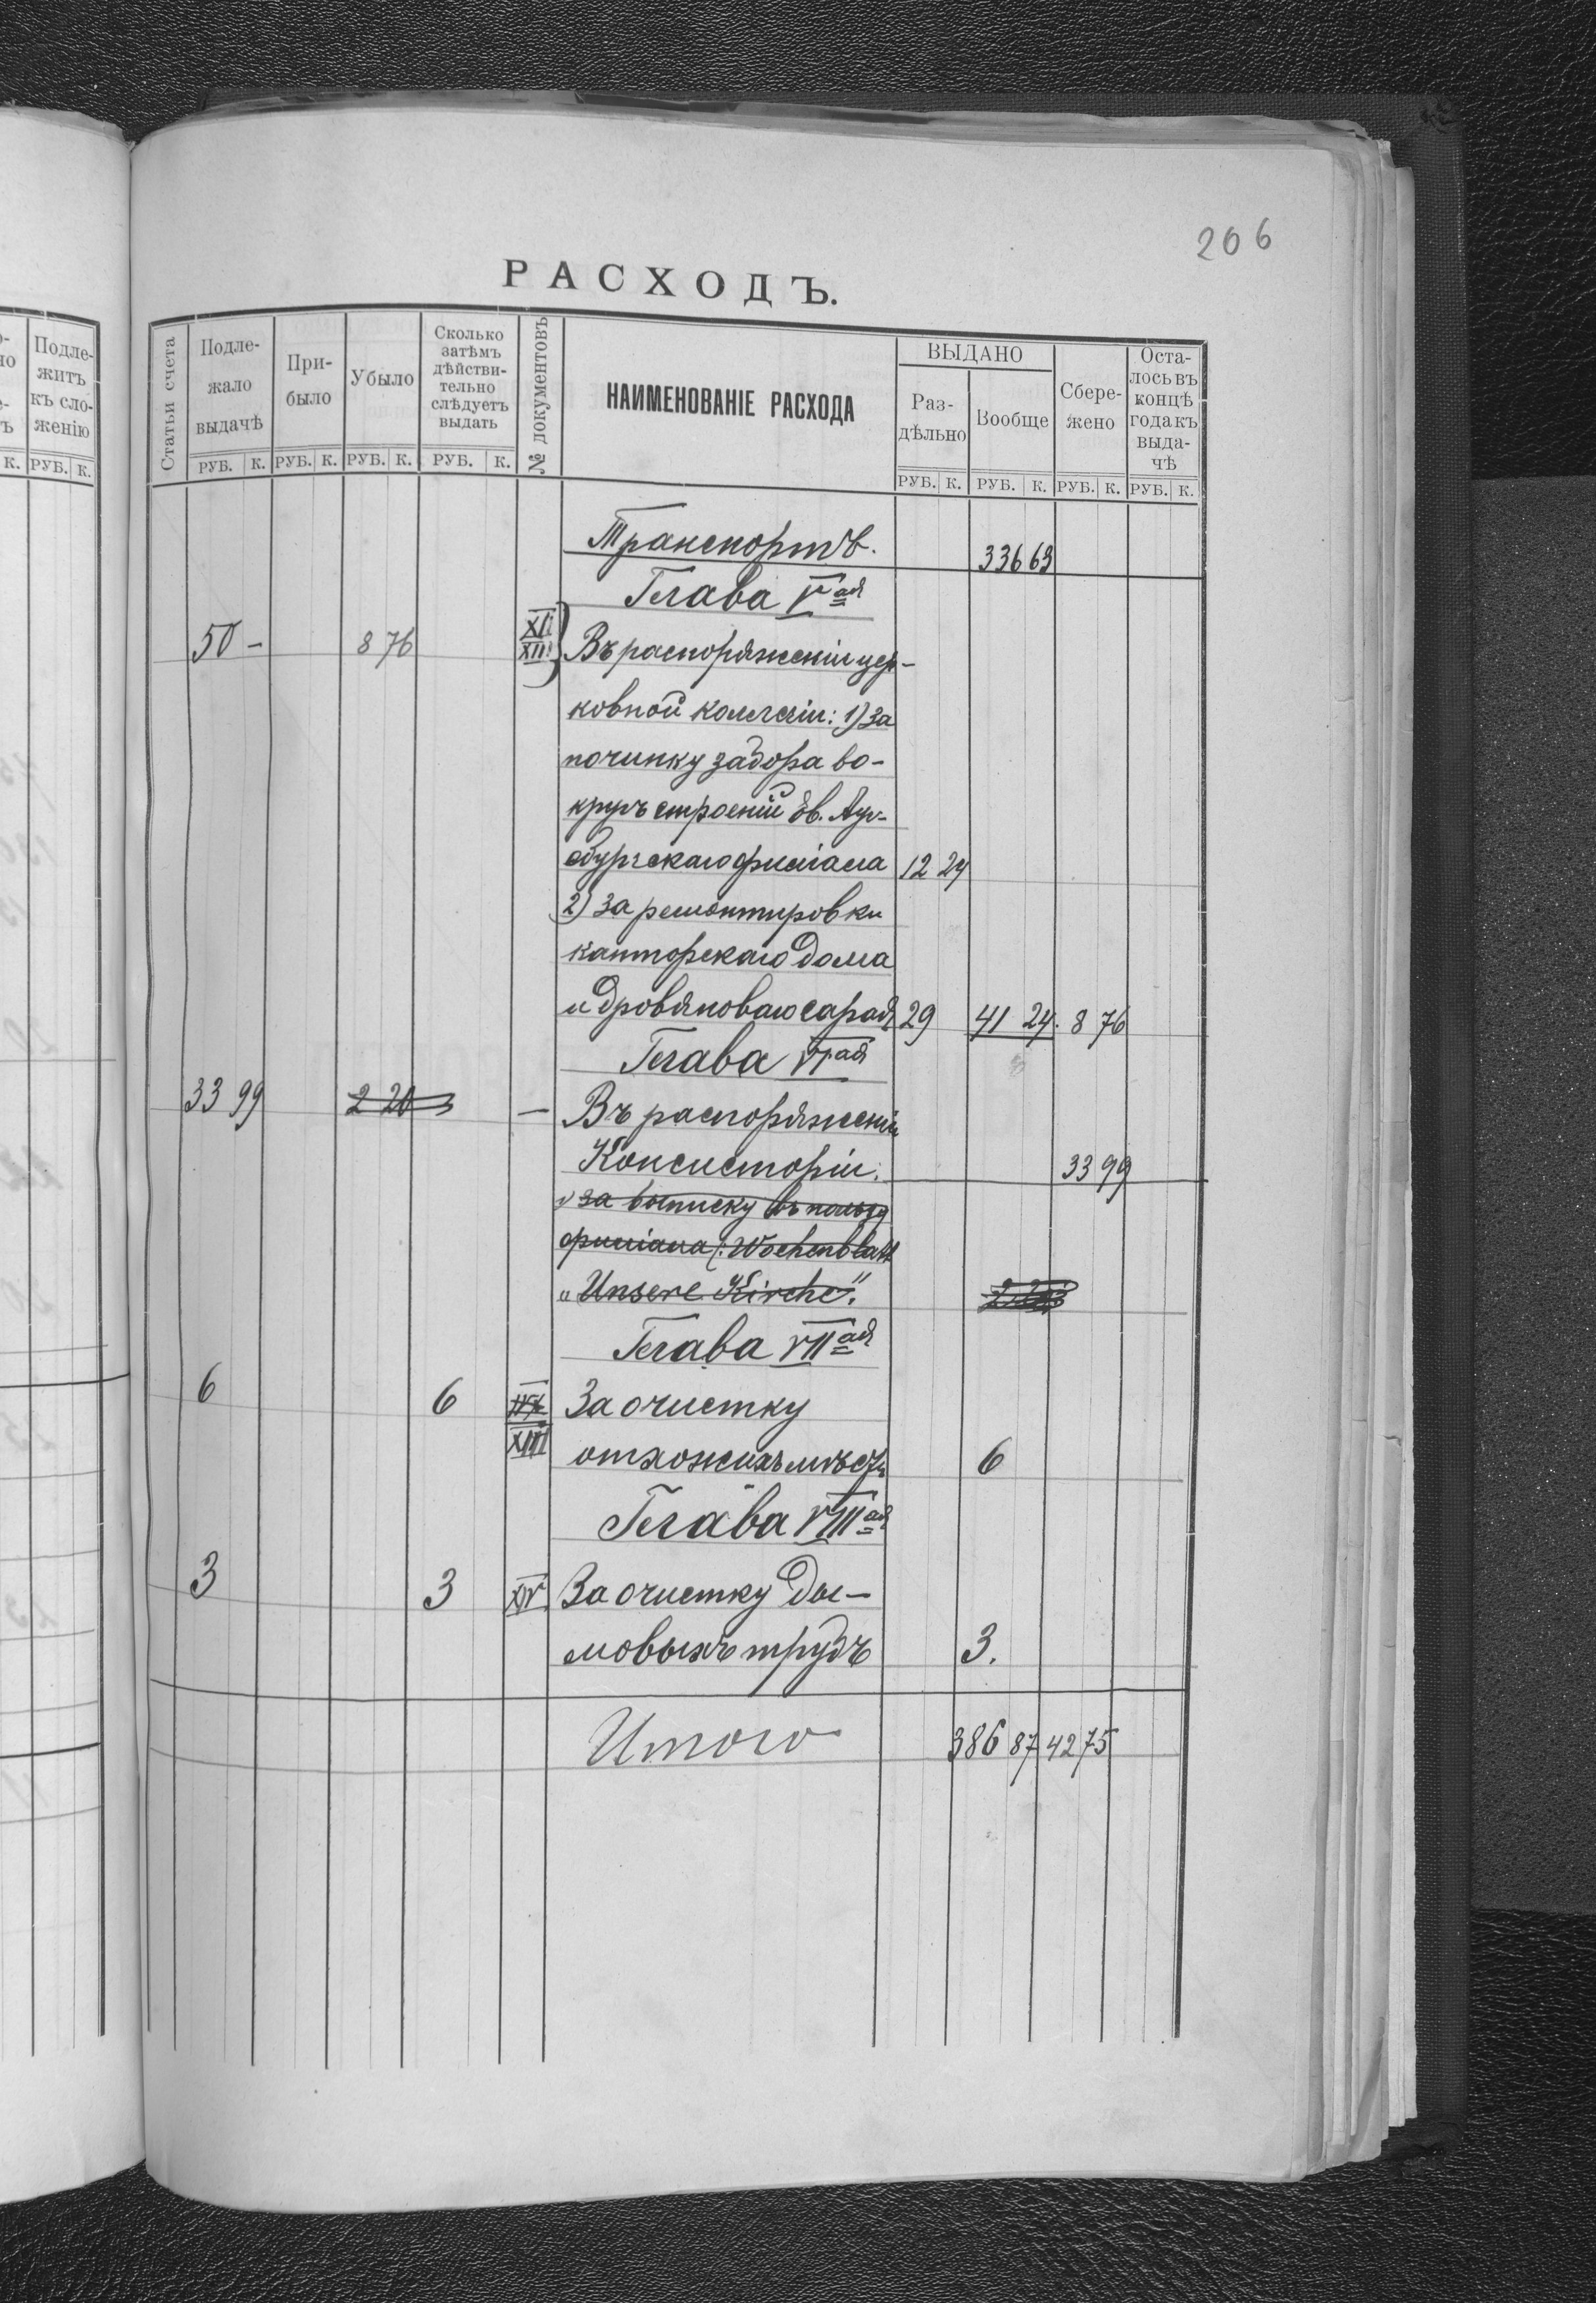 206
РАСХОДЪ.
Статьи счета
Подле-
жало
выдачѣ
При-
было
Убыло
Сколько
затѣмъ
дѣйстви-
тельно
слѣдуетъ
выдать
№ документовъ
НАИМЕНОВАНІЕ РАСХОДА
ВЫДАНО
Раз-
дѣльно
Вообще
Сбере-
жено
Оста-
лось въ
концѣ
года къ
выда-
чѣ
РУБ. К. РУБ. К. РУБ. К. РУБ. К. РУБ. К. РУБ. К. РУБ. К. РУБ. К.
Подле-
житъ
къ сло-
женію
К. РУБ. К.
Транспортъ. 336 63
Глава V ая
50 - 8 76 XII XIII Въ распоряженіи цер-
ковной коллегіи: 1) за
починку забора во-
кругъ строеній Ев.Ауг-
сбургскаго филіала 12 24
2) за ремонтировки
канторскаго дома
и дровяноваго сарая 29 41 24. 8 76
Глава VI ая
33 99 2 20 — Въ распоряженіи
Консисторіи. 33 99
за выписку въ пользу
филіала: Wochenblatt
„Unsere Kirche".
Глава VII ая
6 6 XIII За очистку
отхожихъ мѣстъ 6
Глава VIII ая
3 3 XIV За очистку ды-
мовыхъ трубъ 3.
Итого 386 87 42 75